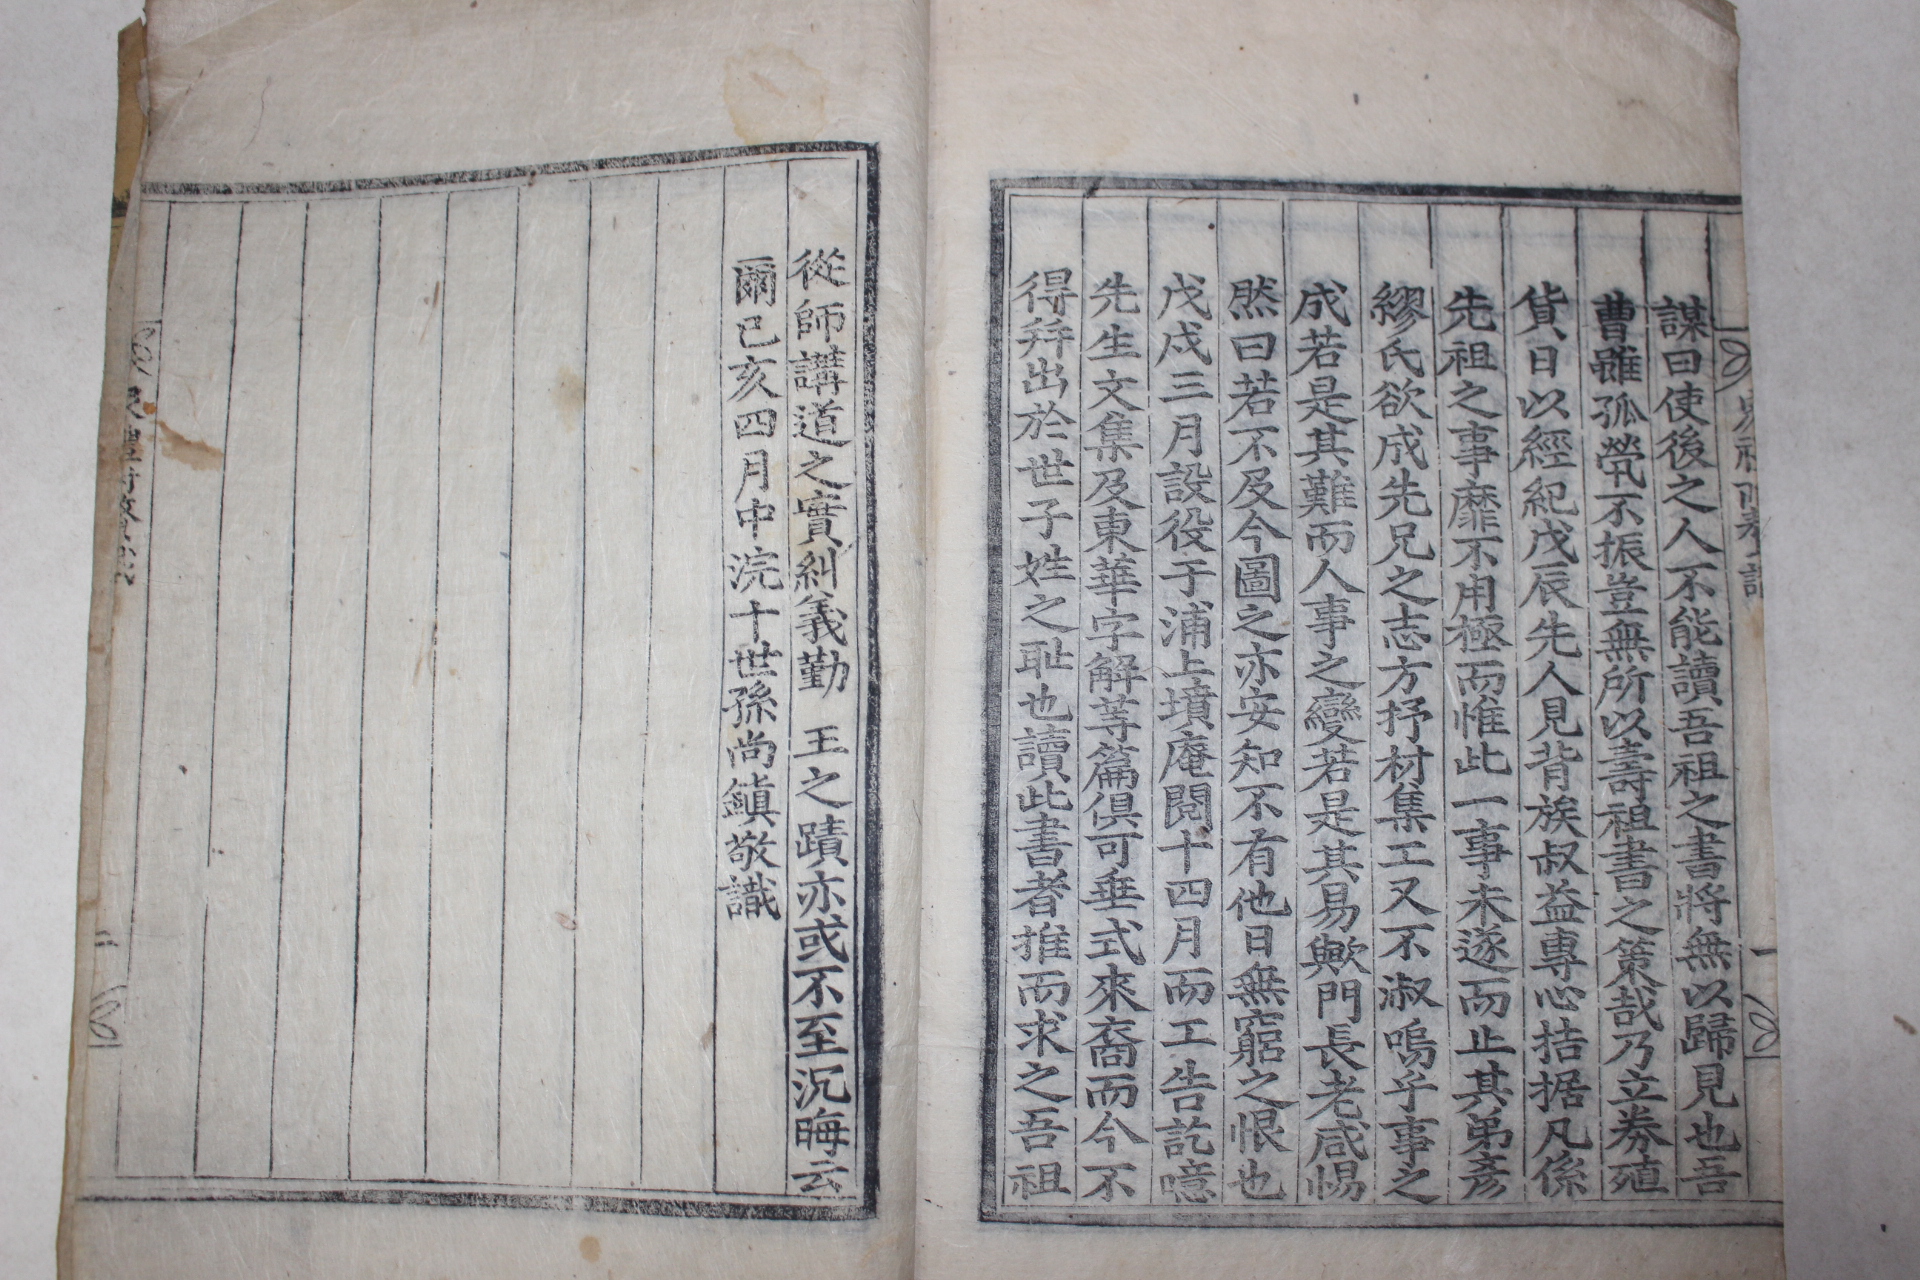 謀曰使後之人不能讀吾祖之書將無以歸見也吾
曹雖孤煢不振豈無所以壽祖書之策哉乃立券殖
貨日以經紀戊辰先人見背族叔益專心拮据凡係
先祖之事靡不用極而惟此一事未遂而止其弟彦
繆氏欲成先兄之志方抒材集工又不淑嗚乎事之
成若是其難而人事之變若是其易歟門長老咸惕
然曰若不及今圖之亦安知不有他日無窮之恨也
戊戌三月設役于浦上墳庵閱十四月而工告訖噫
先生文集及東華字解等篇俱可垂式來裔而今不
得幷出於世子姓之耻也讀此書者推而求之吾祖
從師講道之實糾義勤 王之蹟亦或不至沉晦云
爾己亥四月中浣十世孫尚鎮敬識